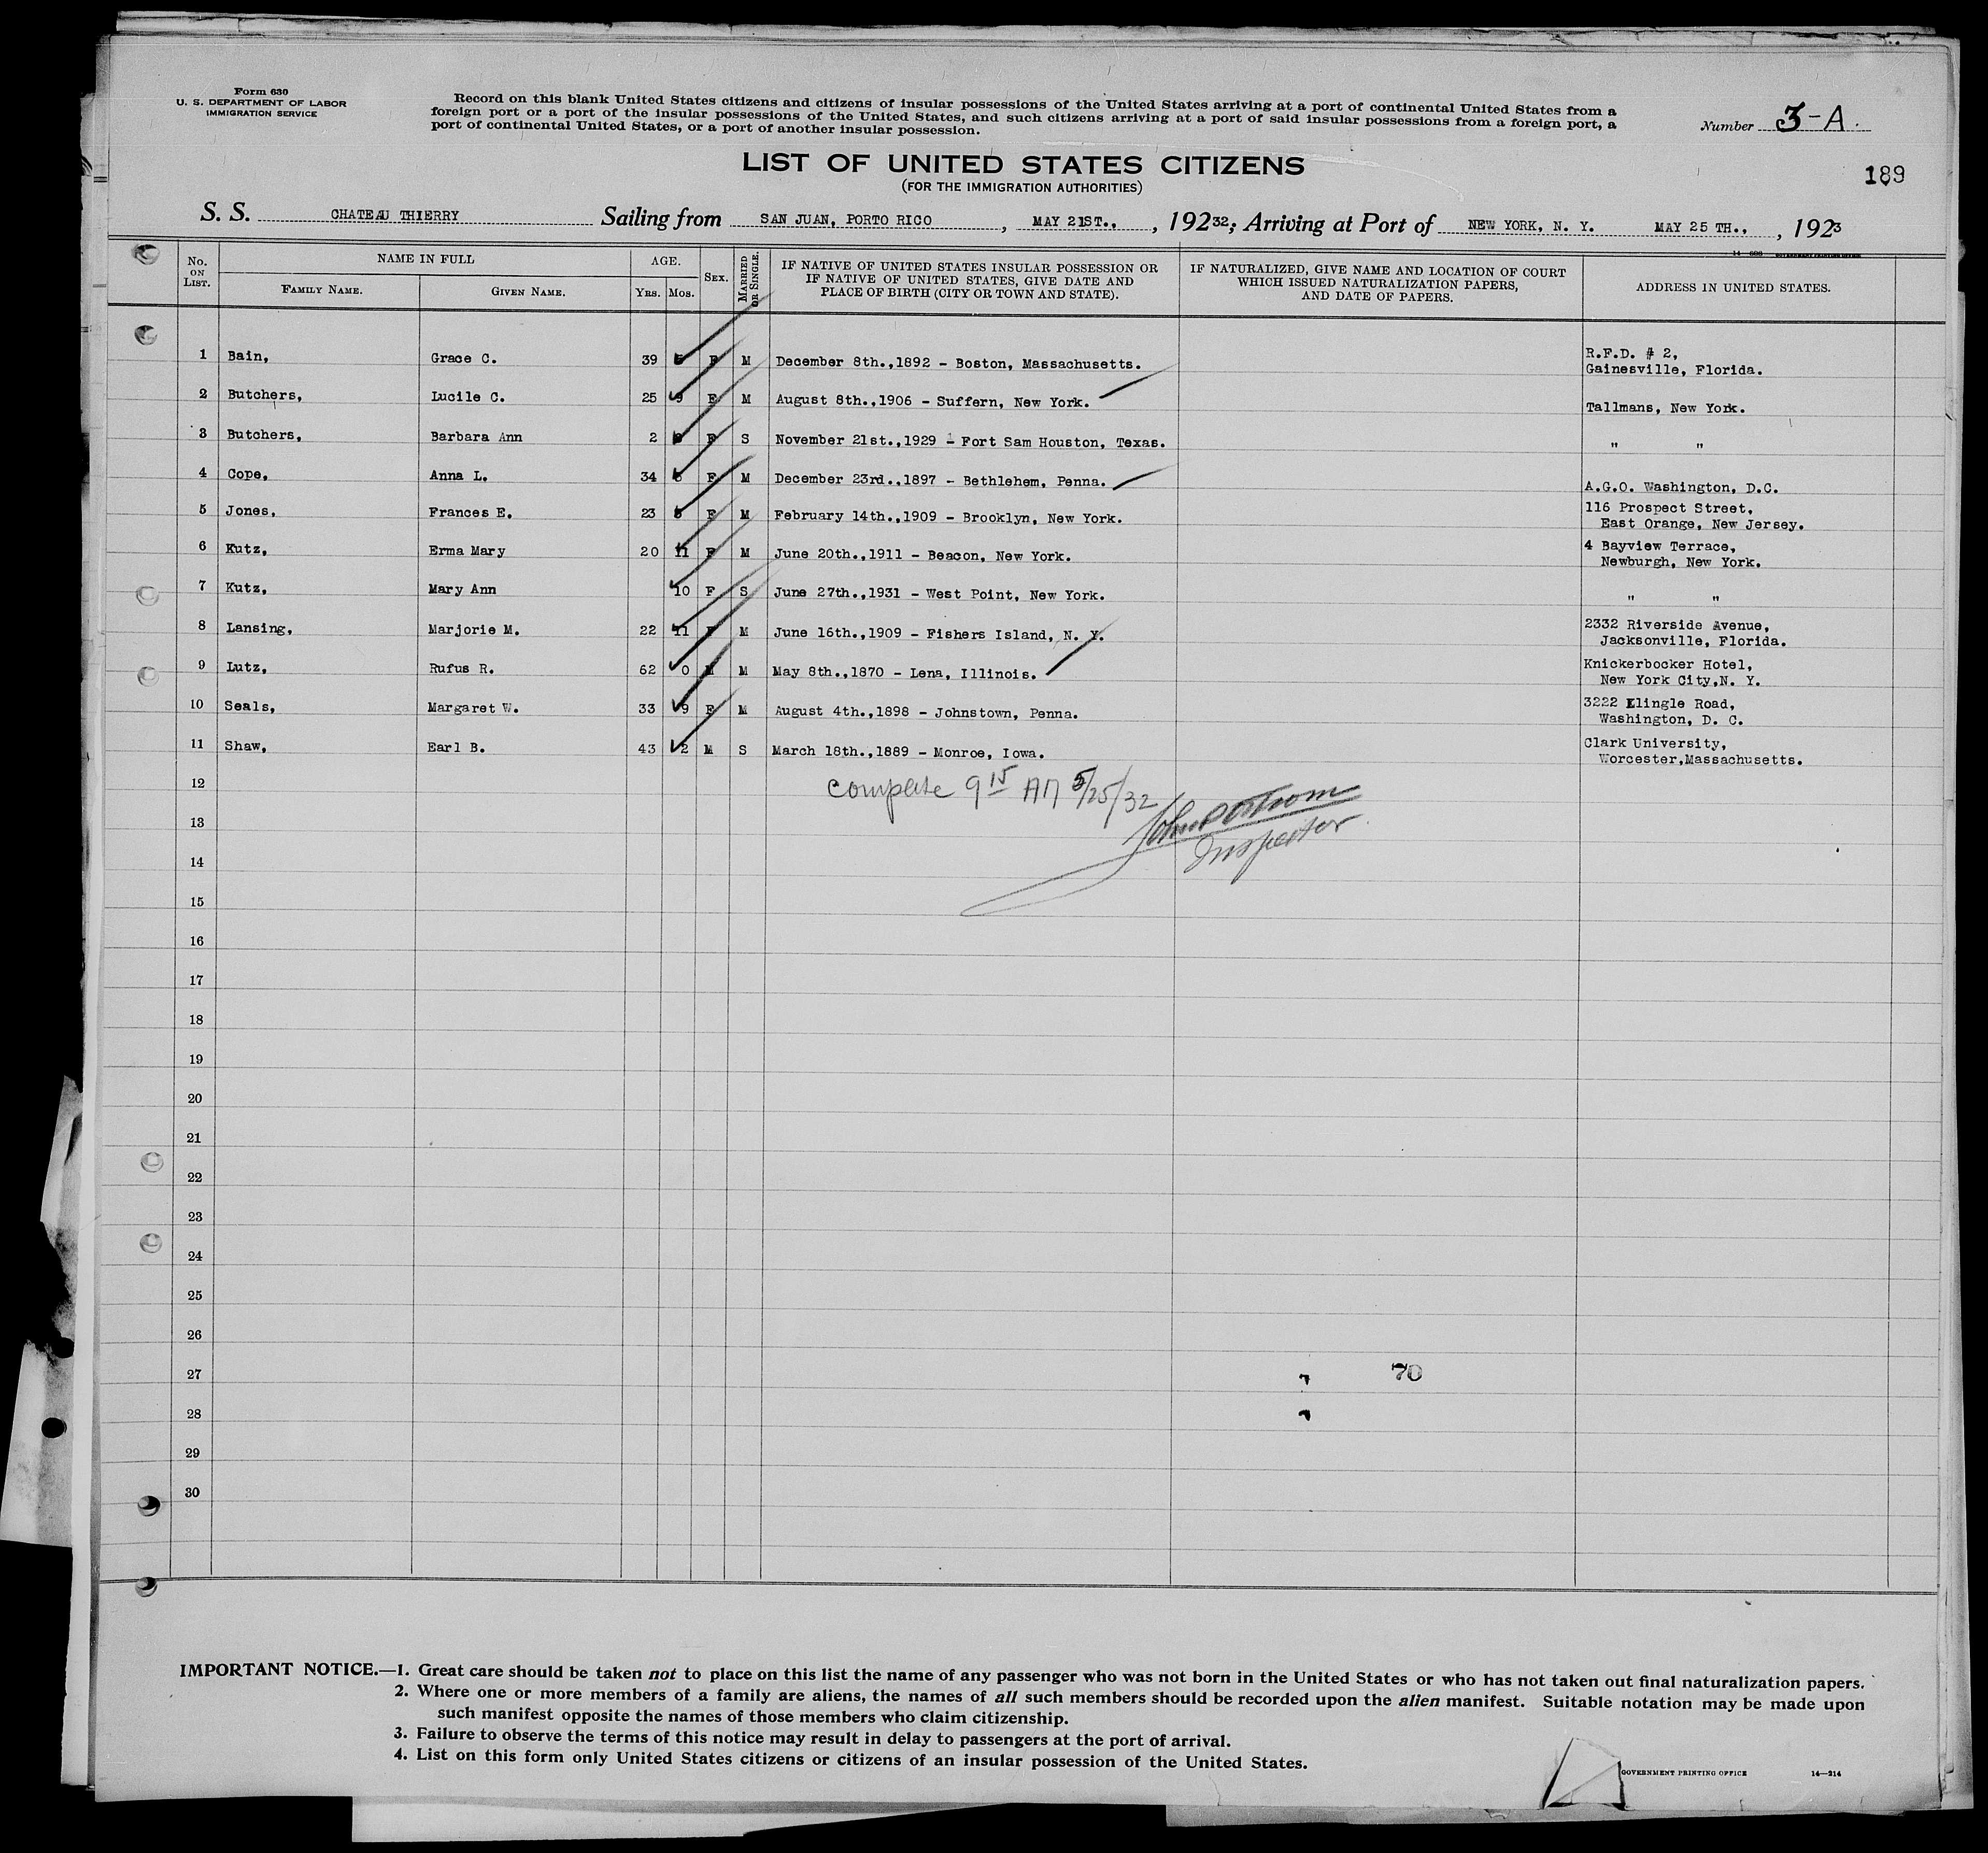 Form 630
U. S. DEPARTMENT OF LABOR
IMMIGRATION SERVICE
Record on this blank United States citizens and citizens of insular possessions of the United States arriving at a port of continental United States from a
foreign port or a port of the insular possessions of the United States, and such citizens arriving at a port of said insular possessions from a foreign port, a
port of continental United States, or a port of another insular possession.
Number 3-A.
LIST OF UNITED STATES CITIZENS
(FOR THE IMMIGRATION AUTHORITIES)
189
S. S. CHATEAU THIERRY Sailing from SAN JUAN, PORTO RICO, MAY 21ST., , 19232; Arriving at Port of NEW YORK, N. Y. MAY 25 TH., , 1923
No. ON LIST. NAME IN FULL FAMILY NAME. GIVEN NAME. AGE. YRS. MOS. SEX. MARRIED OR SINGLE. IF NATIVE OF UNITED STATES INSULAR POSSESSION OR IF NATIVE OF UNITED STATES, GIVE DATE AND PLACE OF BIRTH (CITY OR TOWN AND STATE). IF NATURALIZED, GIVE NAME AND LOCATION OF COURT WHICH ISSUED NATURALIZATION PAPERS, AND DATE OF PAPERS. ADDRESS IN UNITED STATES.
1 Bain, Grace C. 39 5 F M December 8th.,1892 - Boston, Massachusetts. R.F.D. # 2,
Gainesville, Florida.
2 Butchers, Lucile C. 25 9 F M August 8th.,1906 - Suffern, New York. Tallmans, New York.
3 Butchers, Barbara Ann 2 F S November 21st.,1929 - Fort Sam Houston, Texas. " "
4 Cope, Anna L. 34 5 F M December 23rd.,1897 - Bethlehem, Penna. A.G.O. Washington, D.C.
5 Jones, Frances E. 23 F M February 14th.,1909 - Brooklyn, New York. 116 Prospect Street,
East Orange, New Jersey.
6 Kutz, Erma Mary 20 11 F M June 20th.,1911 - Beacon, New York. 4 Bayview Terrace,
Newburgh, New York.
7 Kutz, Mary Ann 10 F S June 27th.,1931 - West Point, New York. " "
8 Lansing, Marjorie M. 22 11 F M June 16th.,1909 - Fishers Island, N. Y. 2332 Riverside Avenue,
Jacksonville, Florida.
9 Lutz, Rufus R. 62 0 M M May 8th.,1870 - Lena, Illinois. Knickerbocker Hotel,
New York City,N. Y.
10 Seals, Margaret W. 33 9 F M August 4th.,1898 - Johnstown, Penna. 3222 Klingle Road,
Washington, D. C.
11 Shaw, Earl B. 43 2 M S March 18th.,1889 - Monroe, Iowa. Clark University,
Worcester,Massachusetts.
12 complete 9 15 AM 5/25/32
13 Inspector
14
15
16
17
18
19
20
21
22
23
24
25
26
27 70
28
29
30
IMPORTANT NOTICE.—1. Great care should be taken not to place on this list the name of any passenger who was not born in the United States or who has not taken out final naturalization papers.
2. Where one or more members of a family are aliens, the names of all such members should be recorded upon the alien manifest. Suitable notation may be made upon
such manifest opposite the names of those members who claim citizenship.
3. Failure to observe the terms of this notice may result in delay to passengers at the port of arrival.
4. List on this form only United States citizens or citizens of an insular possession of the United States.
GOVERNMENT PRINTING OFFICE 14—214